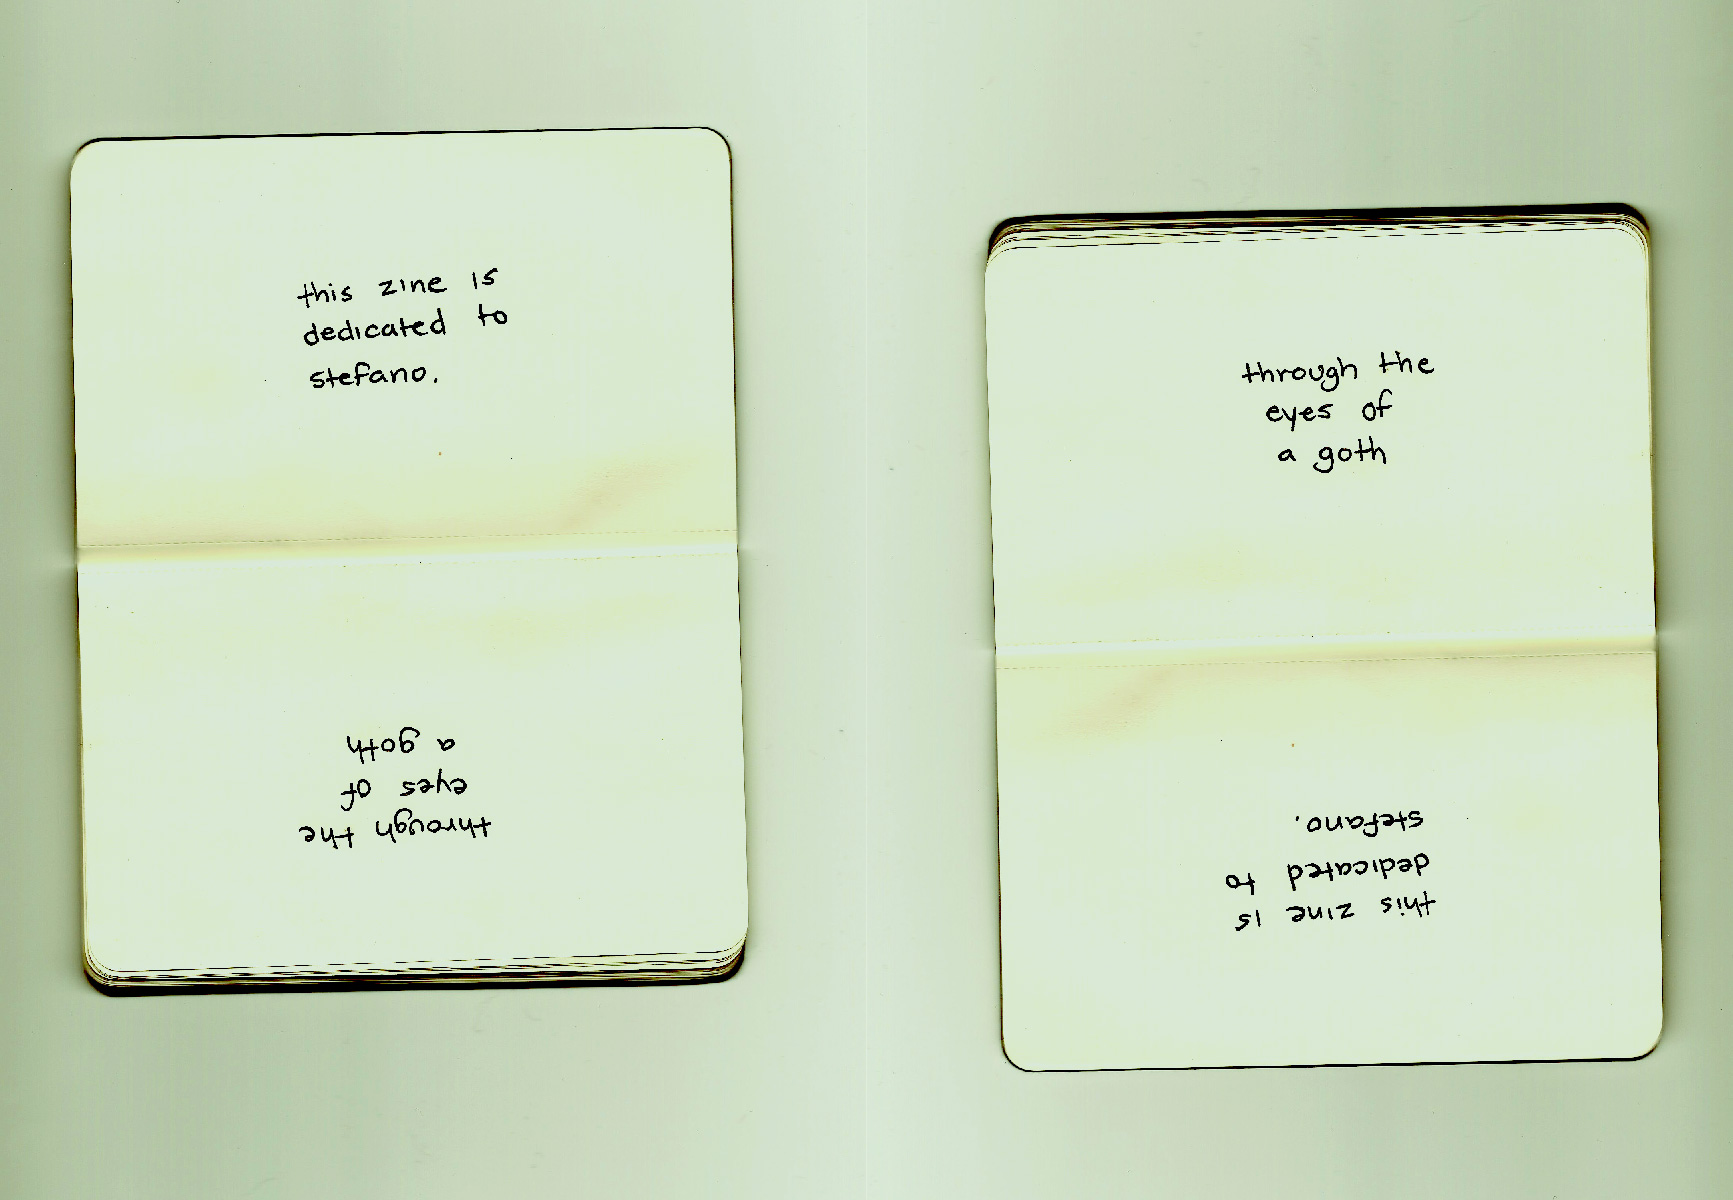 this zine is
dedicated to
stefano.
a goth
eyes of
through the
through the
eyes of
a goth
stefano.
dedicated to
this zine is